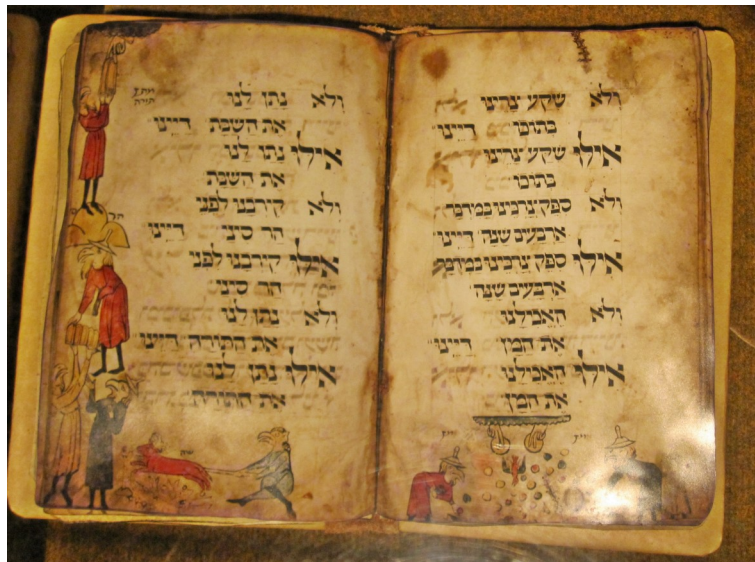 ולא שקע צרינו
בתוכו דיינו
אילו שקע צרינו
בתוכו
ולא ספק צרכינו במדבר
ארבעים שנה דיינו
אילו ספק צרכינו במדבר
ארבעים שנה
ולא האכילנו
את המן דיינו
אילו האכילנו
את המן
ולא נתן לנו
את השבת דיינו
אילו נתן לנו
את השבת
ולא קירבנו לפני
הר סיני דיינו
אילו קירבנו לפני
הר סיני
ולא נתן לנו
את התורה דיינו
אילו נתן לנו
את התורה
ומתן
תורה